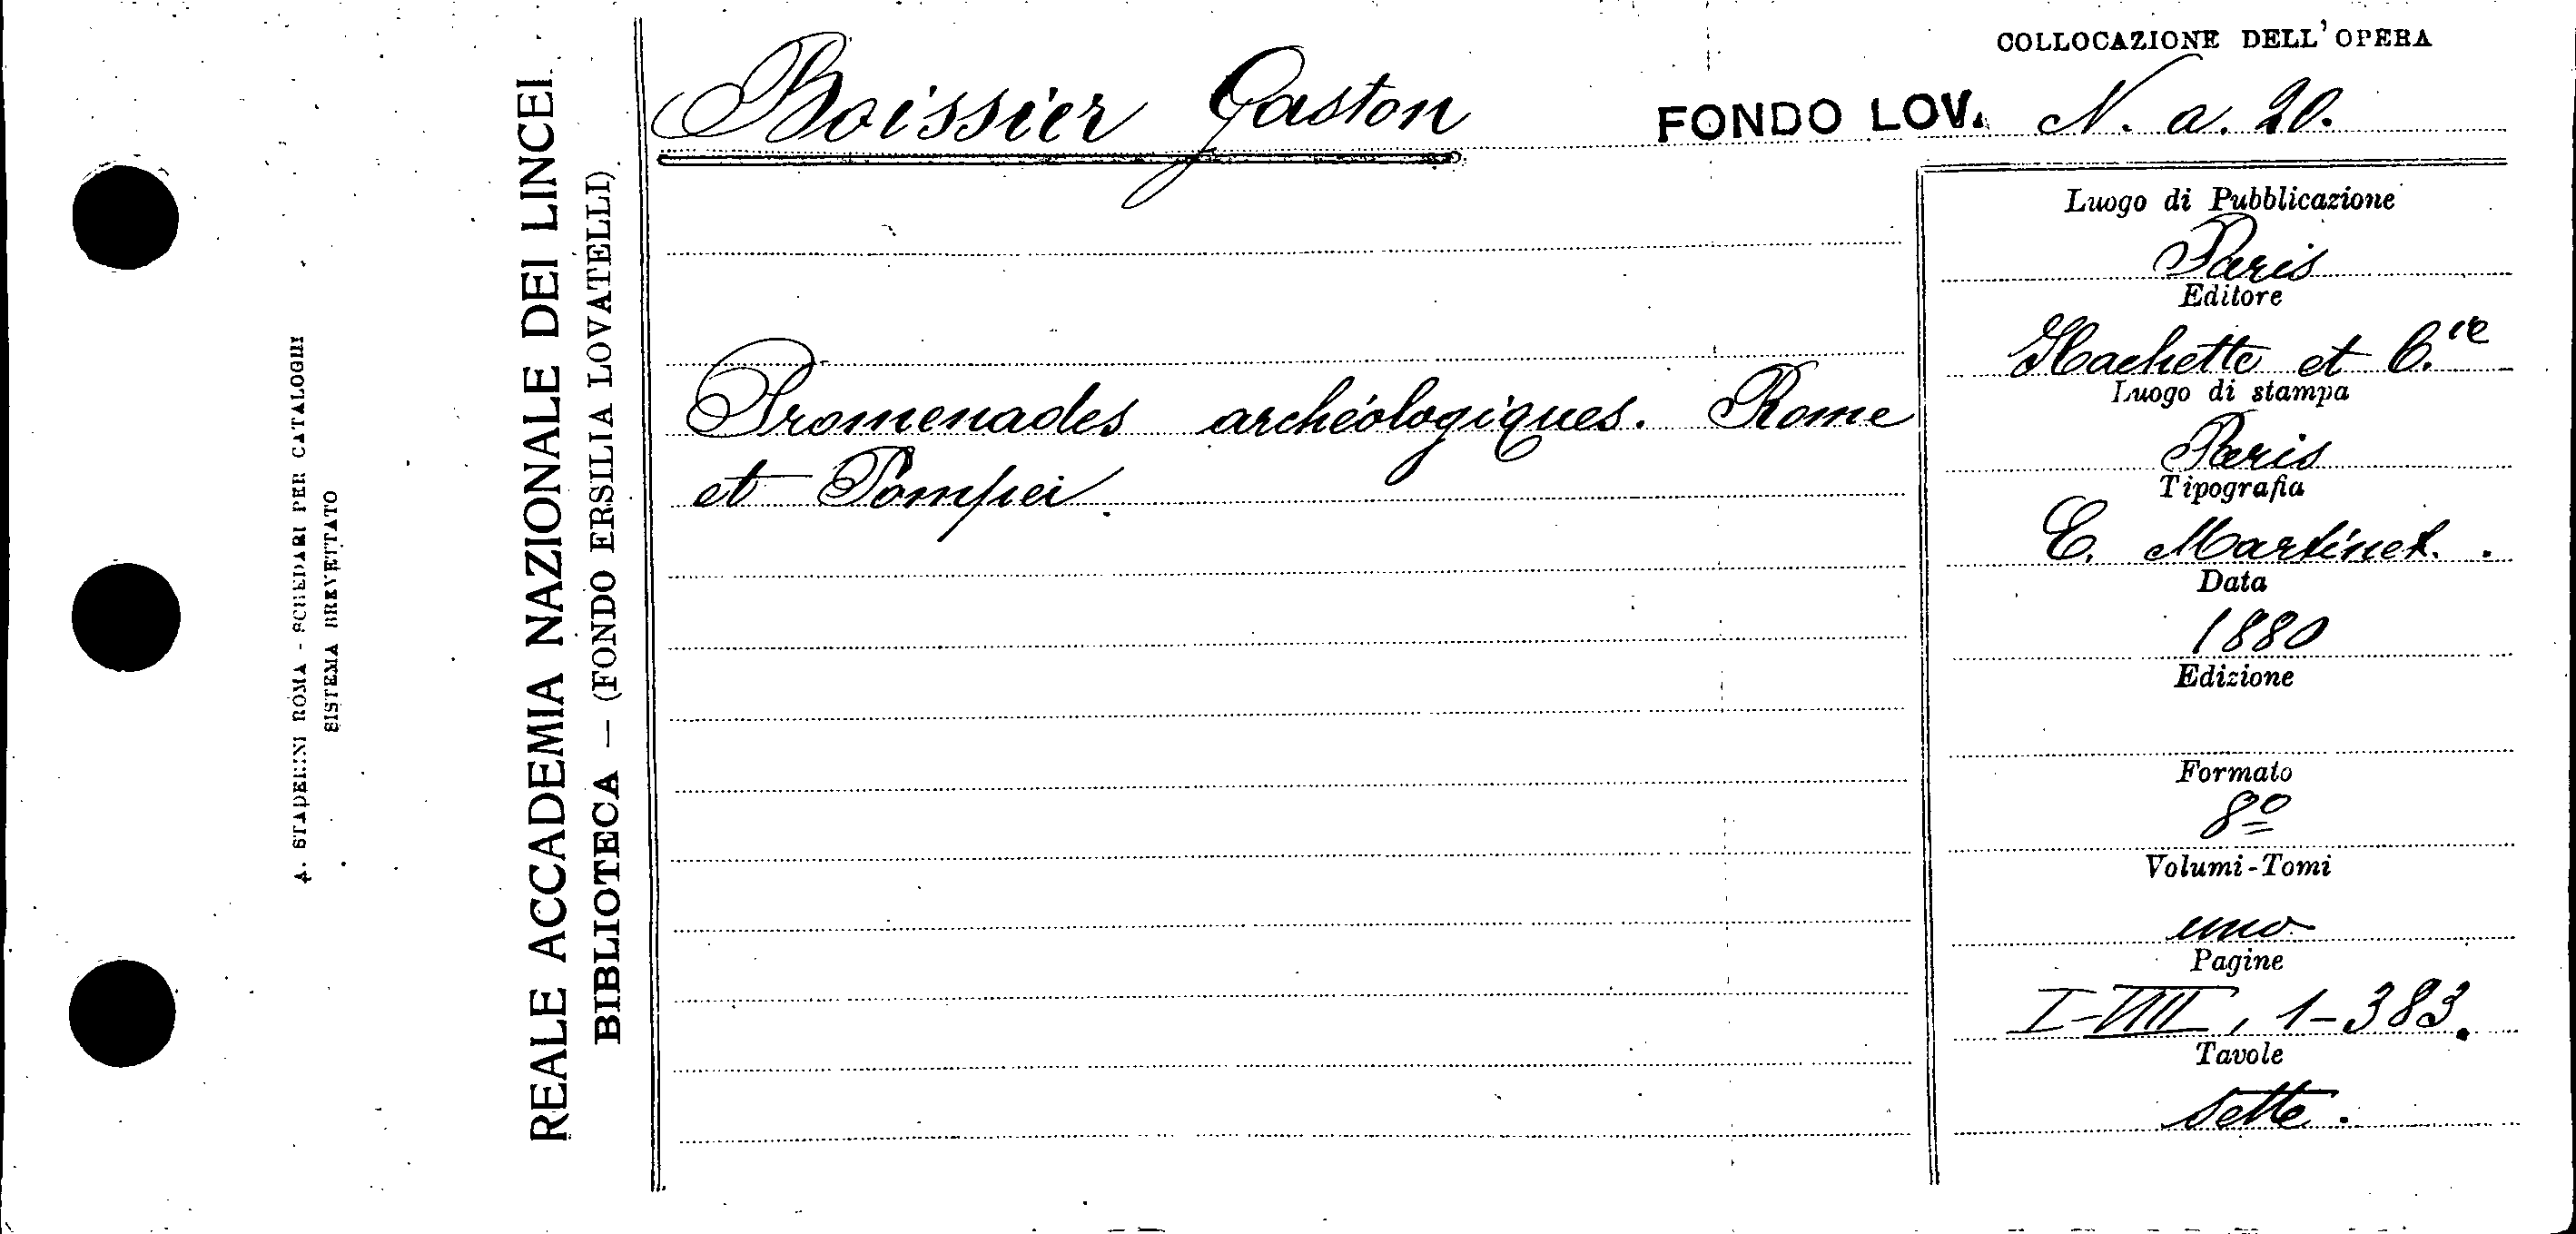 COLLOCAZIONE DELL'OPERA
Boissier Gaston
FONDO LOV. N. a. 20.
Promenades archéologiques. Rome
et Pompei.
Luogo di Pubblicazione
Paris
Editore
Hachette et C.ie
Luogo di stampa
Paris
Tipografia
E. Martinet.
Data
1880
Edizione
Formato
8º
Volumi-Tomi
uno
Pagine
I-VIII, 1-383.
Tavole
sette.
REALE ACCADEMIA NAZIONALE DEI LINCEI
BIBLIOTECA — (FONDO ERSILIA LOVATELLI)
A. STADERINI ROMA - SCHEDARI PER CATALOGHI
SISTEMA BREVETTATO